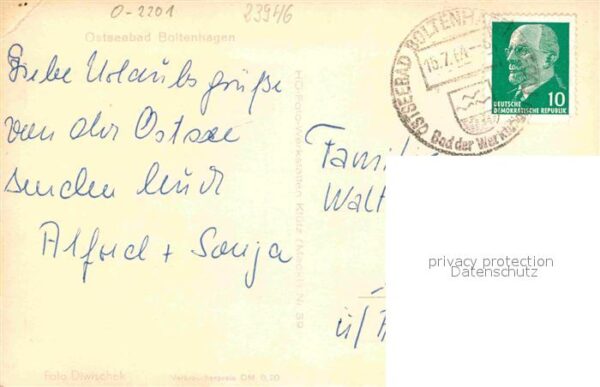 O-2201
23946
Ostseebad Boltenhagen
Liebe Urlaubsgrüße
von der Ostsee
senden Euch
Alfred + Sonja
Foto Diwischek
Verbraucherpreis DM 0,20
OSTSEEBAD BOLTENHAGEN
Bad der Werktätigen
DEUTSCHE
DEMOKRATISCHE REPUBLIK
10
Famil
Walt
privacy protection
Datenschutz